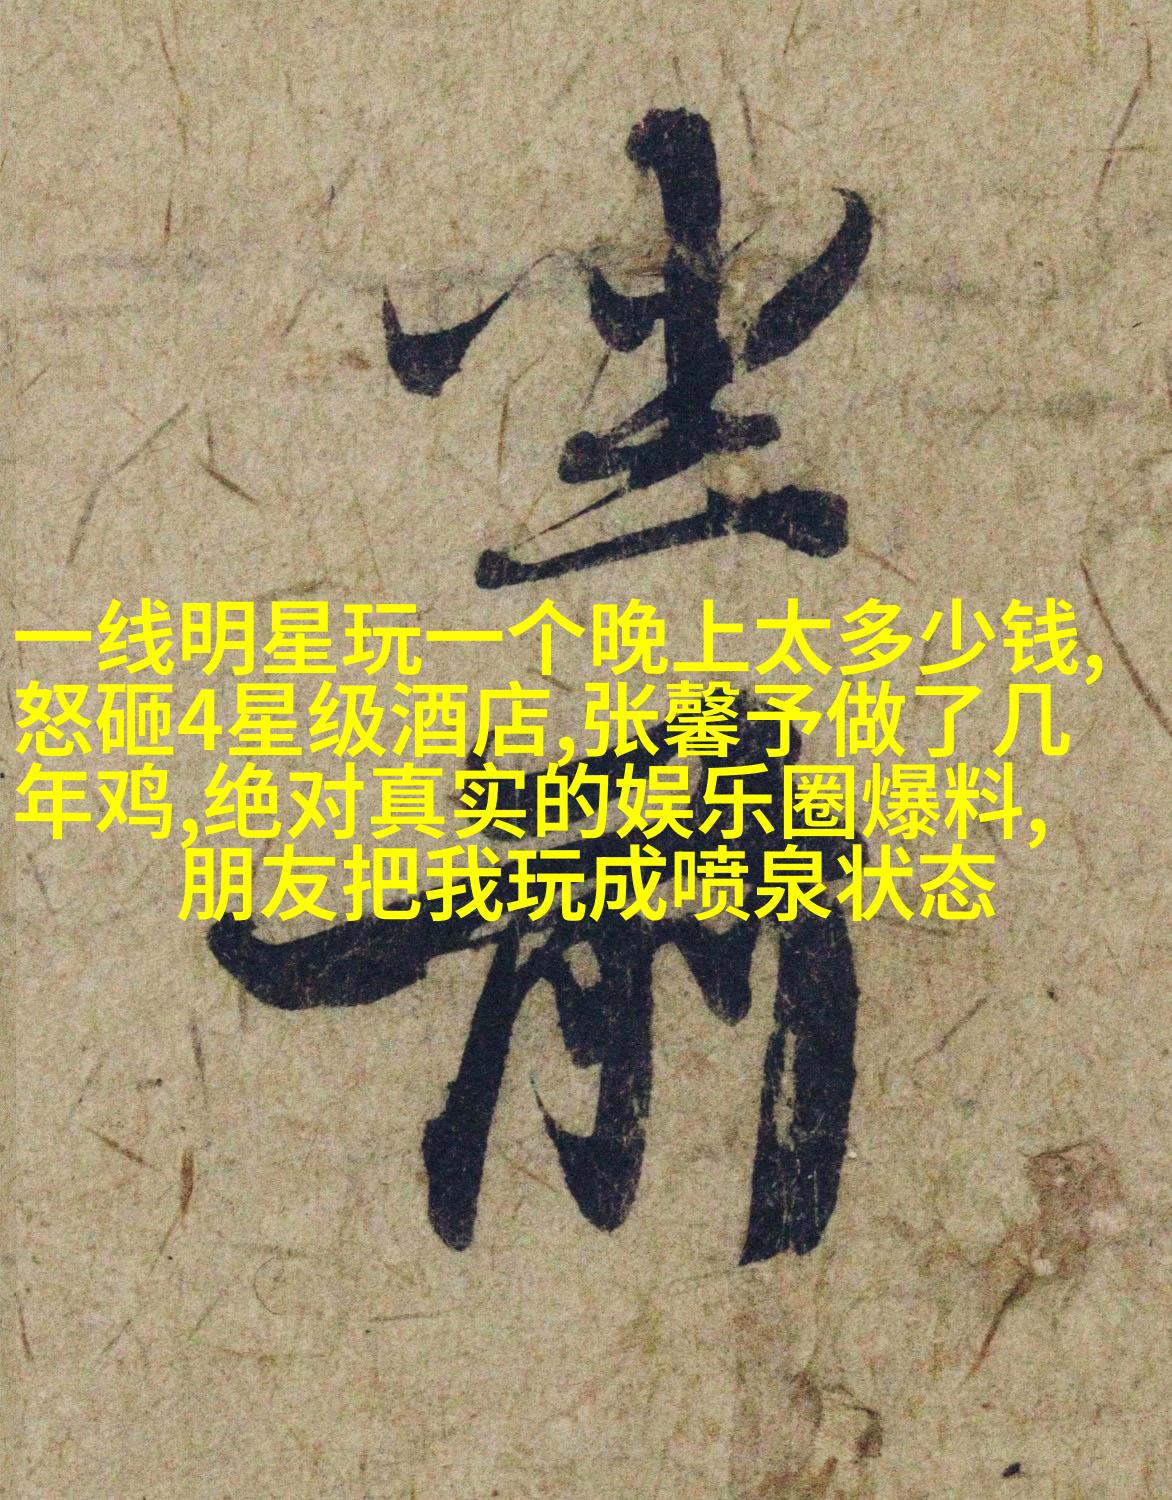 一线明星玩一个晚上太多少钱,
怒砸4星级酒店,张馨予做了几
年鸡,绝对真实的娱乐圈爆料,
朋友把我玩成喷泉状态